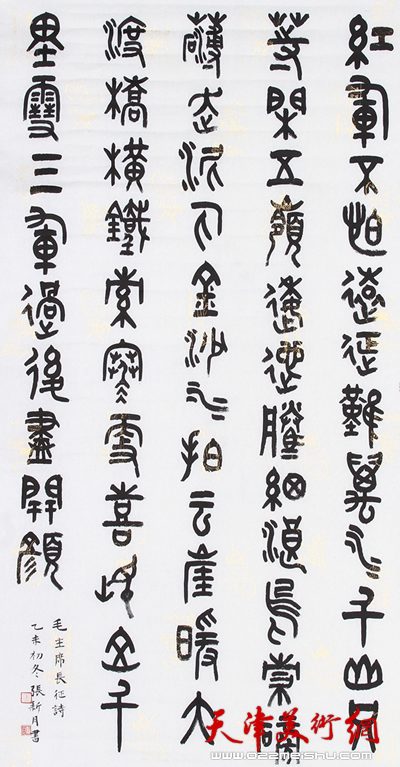 紅軍不怕遠征難萬水千山只
等閑五嶺逶迤騰細浪烏蒙磅
礴走泥丸金沙水拍云崖暖大
渡橋橫鐵索寒更喜岷山千
里雪三軍過後盡開顏
毛主席長征詩
乙未初冬張新月書
天津美術網